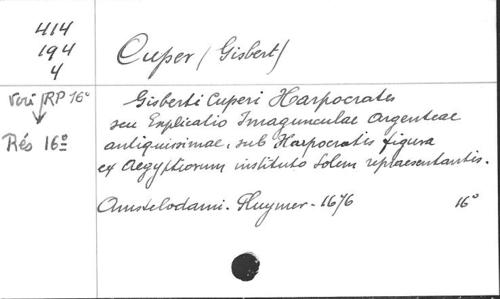 414
194
4
Cuper (Gisbert)
RP 16°
Rés 16°
Gisberti Cuperi Harpocrates
seu Explicatio Imagunculae argenteae
antiquissimae, sub Harpocratis figura
ex Aegyptiorum instituto Solem repraesentantis.
Amstelodami. Huymer - 1676 16°